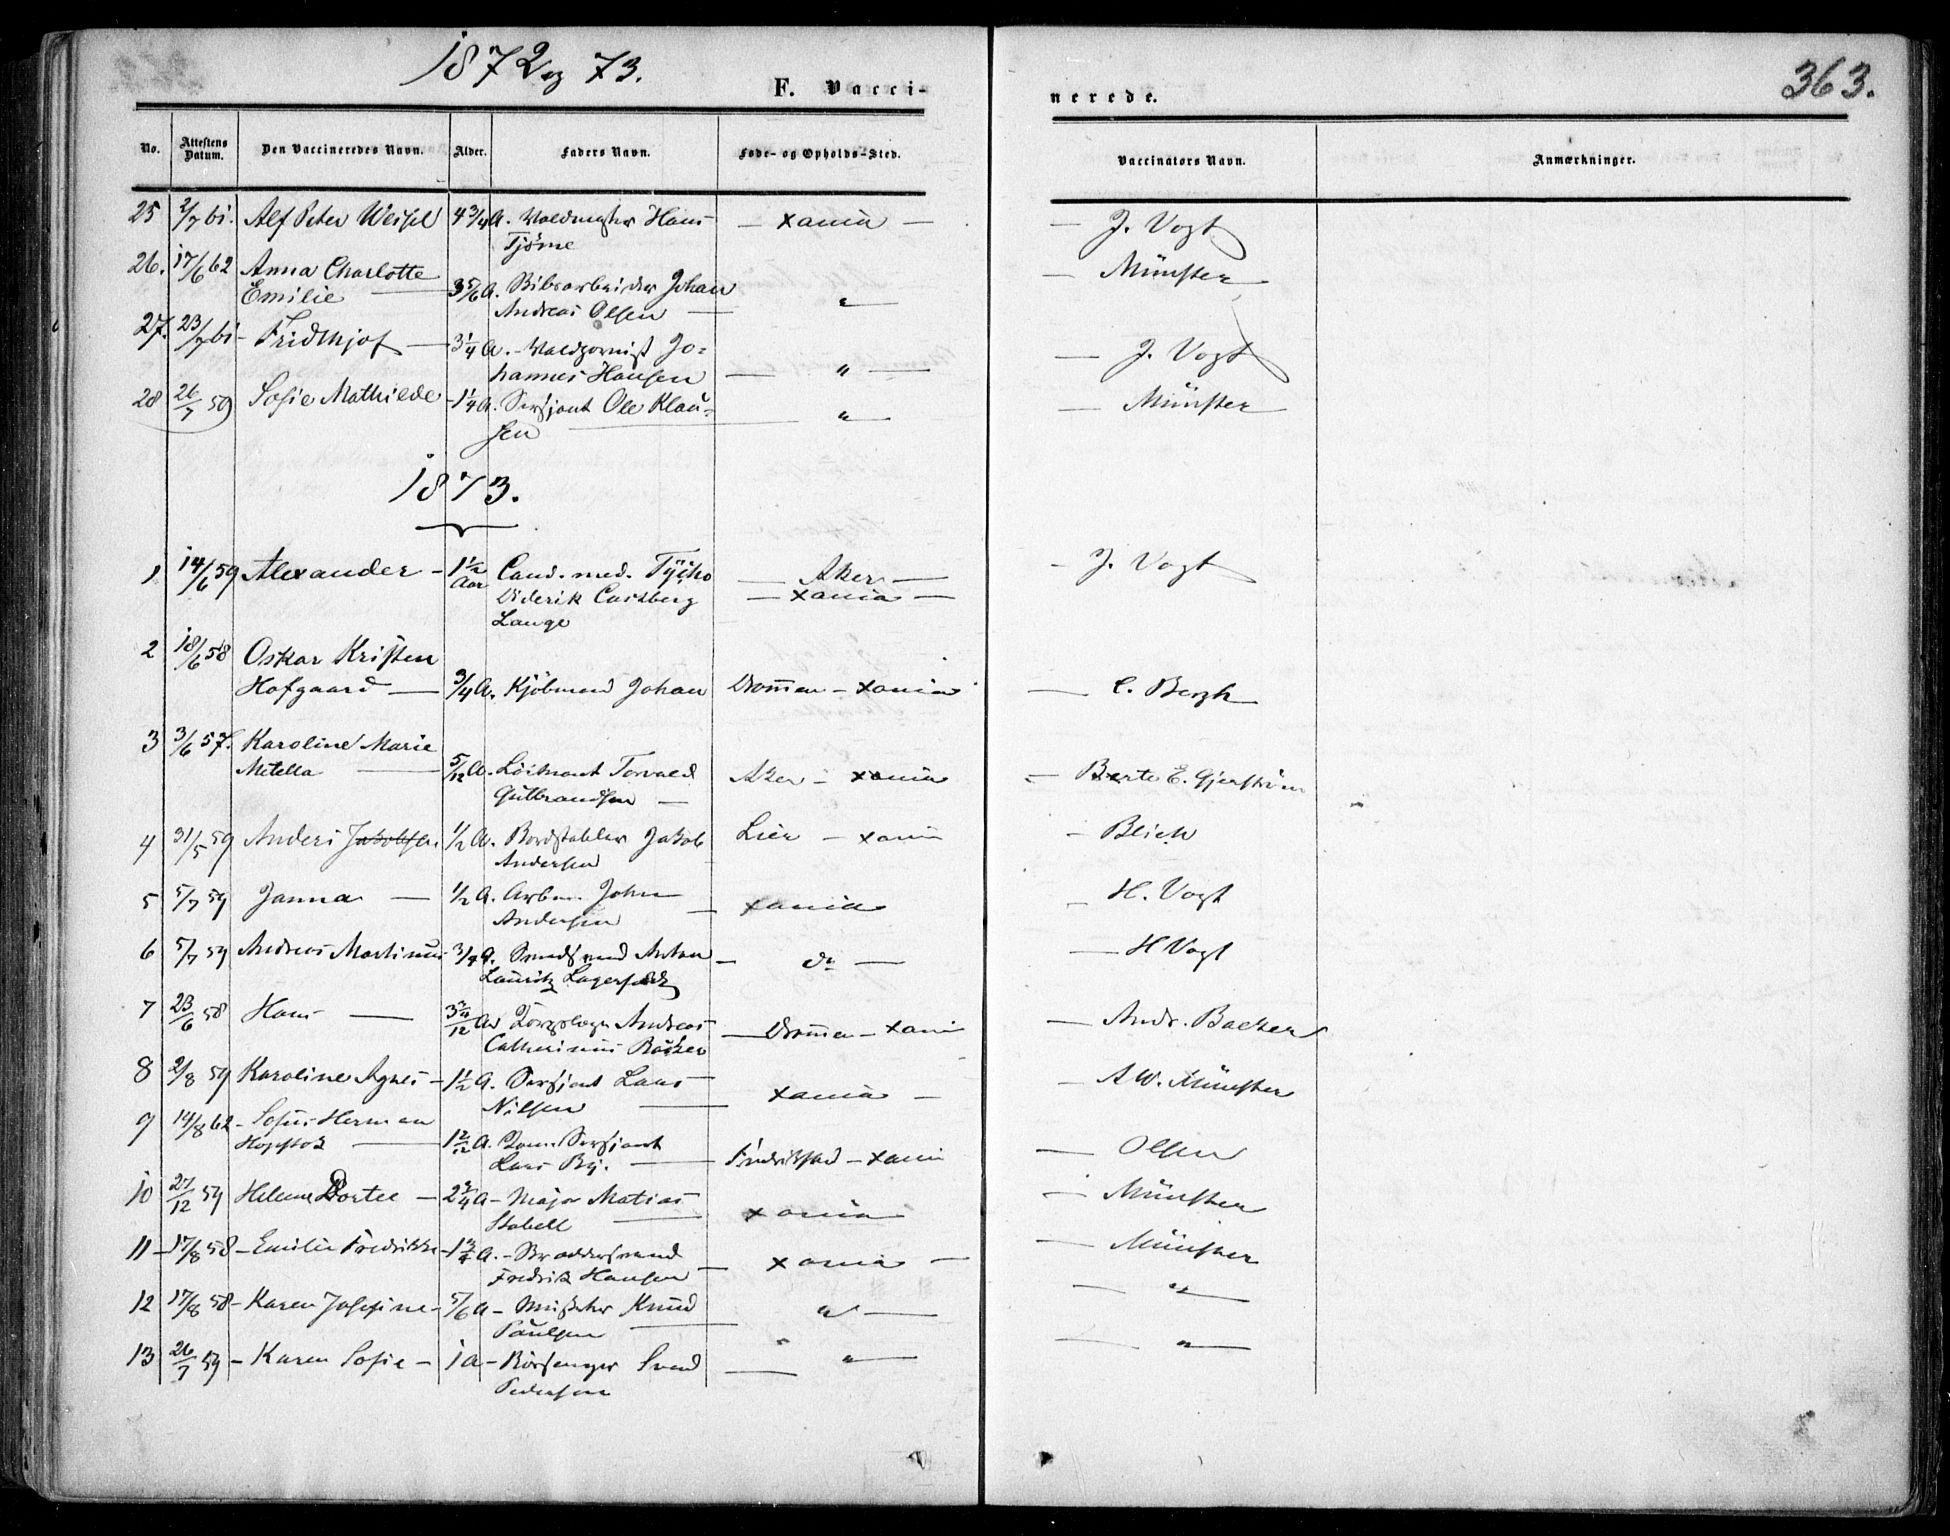 1872 og 73.
F. Vacci-
nerede.
363.
No. Attestens Datum. Den Vaccineredes Navn. Alder. Faders Navn. Føde- og Opholds-Sted. Vaccinators Navn. Anmærkninger.
25 2/7 61. Alf Peter Weisel 4 3/4 A. Hans — Xania — — J. Vogt
Tjöme
26. 17/6 62 Anna Charlotte — Münster
Emilie — 3 5/6 A. Johan "
Andreas Olsen —
27. 23/7 61 - Fridthjof — 3 1/4 A. - Jo- — J. Vogt
hannes Hansen — " —
28 26/7 59 Sofie Mathilde - 1 1/4 A. Sersjant Ole Klau- " — Münster
sen —
1873.
1 14/6 59 Alexander - 1 1/2 Aar Cand. med. Tycho — Aker — - J. Vogt
Diderik Castberg — Xania —
Lange
2 18/6 58 Oskar Kristen
Hofgaard — 3/4 A. Kjöbmand Johan Drammen - Xania — C. Bergh
3 3/6 57. Karoline Marie
Metella — 5/12 A. Löitnant Torvald Aker - Xania — Berte E. Gjerström
Gulbrandsen —
4 31/5 59 Anders Jakobsen 1/2 A. Jakob Lier - Xania - Blich
Andersen
5 5/7 59 Janna — 1/2 A. Arbm. John — Xania - H. Vogt
Andersen
6 5/7 59 Andreas Martinus 3/4 A. Anton — do — — H Vogt
Lauritz
7 23/6 58 Hans — Andreas — Drammen - Xania — Andr. Backer
Catherinus Backer
8 2/8 59 Karoline Agnes - 1 1/2 A. Sersjant Lars — Xania — — A W. Münster
Nilsen —
9 14/8 62 - Sofus Herman
Hopstok — 1 2/12 A. Sersjant Fredrikstad - Xania — Olsen
Lars By. —
10 27/12 59 Helene Dortee — 2 3/4 A - Major Matias Xania — Münster
Stabell —
11 - 17/8 58 - Emilie Fredrikke - 1 3/4 A. - — Xania — — Münster
Fredrik Hansen
12 17/8 58 - Karen Josefine - 5/6 A - Knud " — — "
Paulsen —
13 26/7 59 - Karen Sofie - 1 A - Svend — " — "
Pedersen